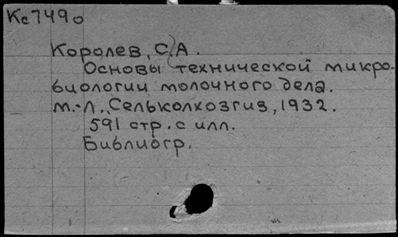 Кс7490
Королев, С.А.
Основы технической микро-
биологии молочного дела.
М.-Л., Сельколхозгиз, 1932.
591 стр. с илл.
Библиогр.